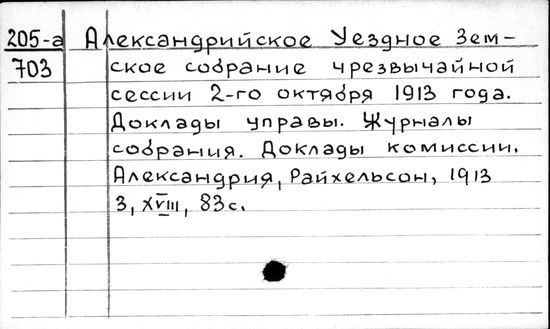 205-а Александрийское Уездное Зем-
703 ское собрание чрезвычайной
сессии 2-го октября 1913 года.
Доклады управы. Журналы
собрания. Доклады комиссии.
Александрия, Райхельсон, 1913
3, XVIII, 83с.